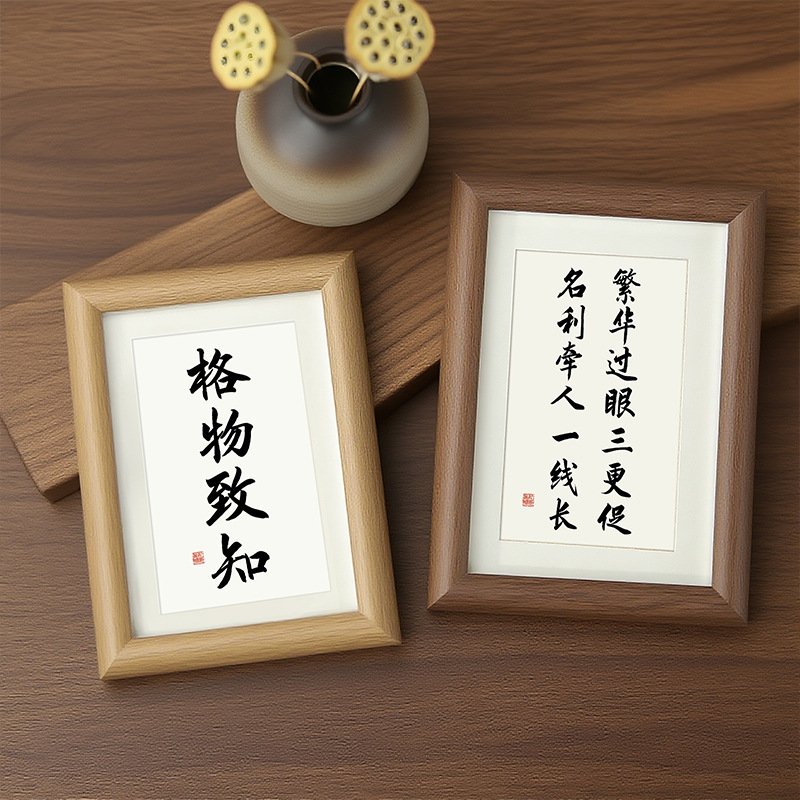 格物致知
繁华过眼三更促
名利牵人一线长